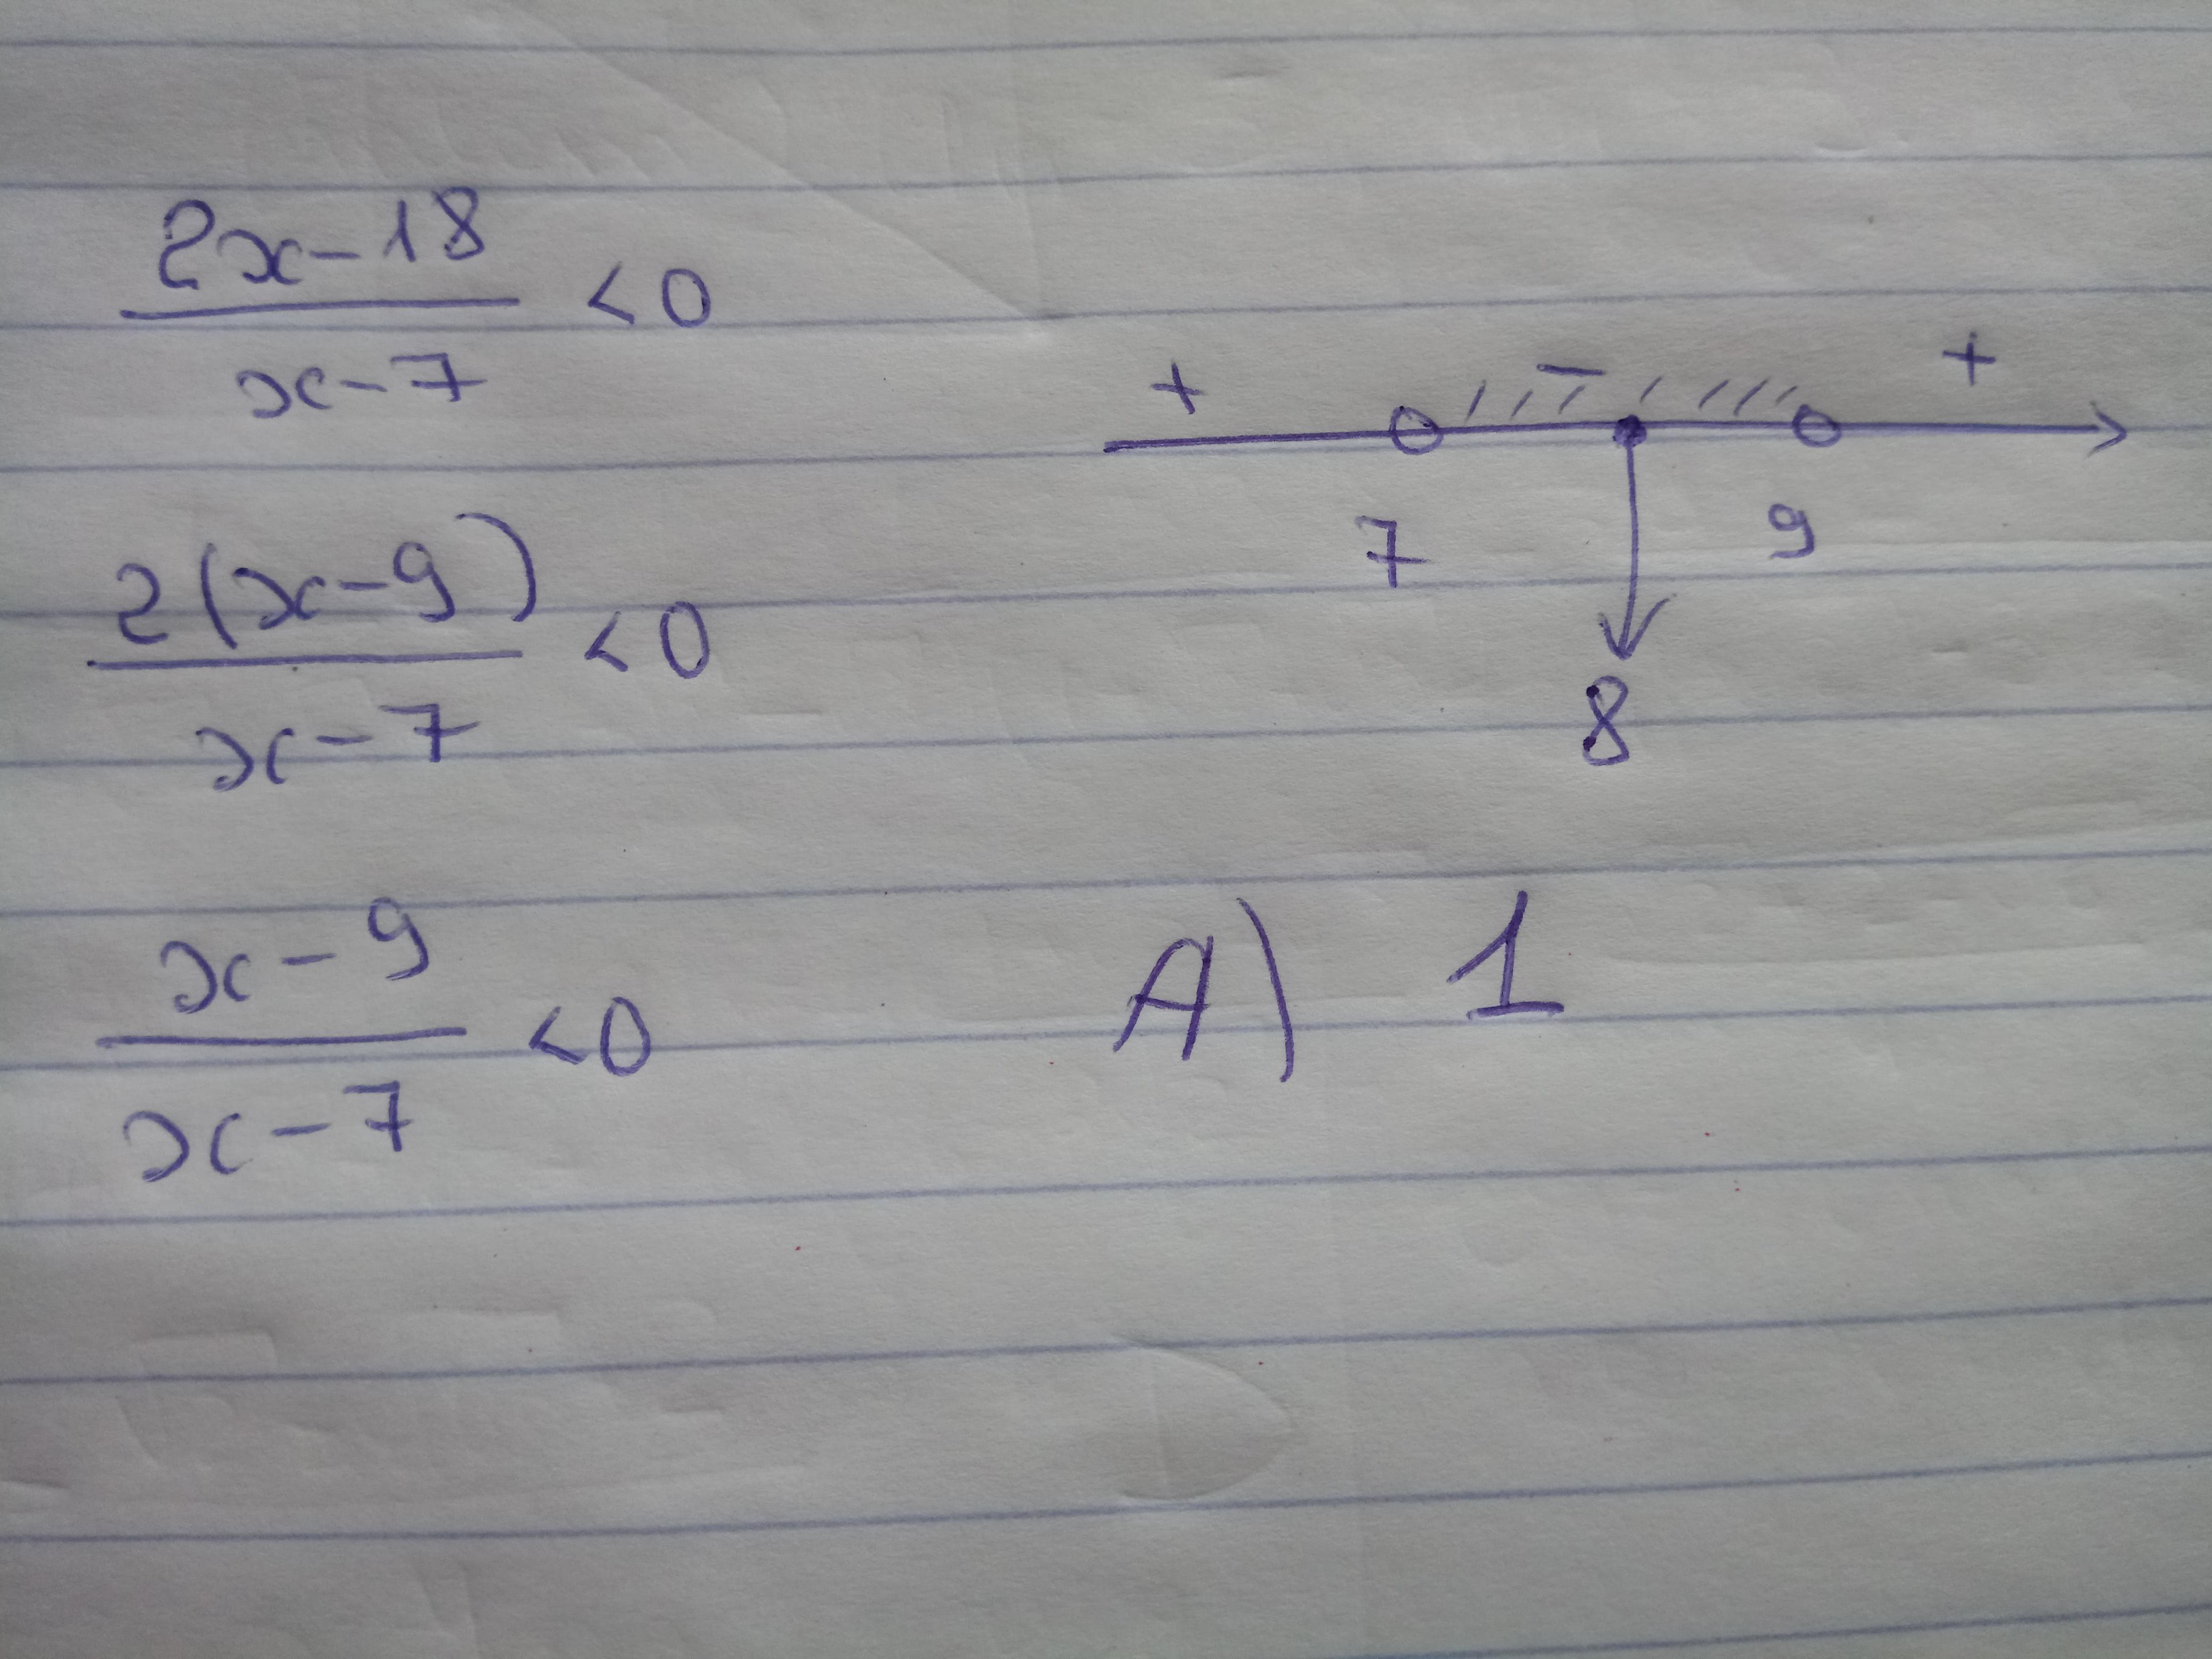 2x-18
<0
x-7
2(x-9)
<0
x-7
x-9
<0
x-7
+ - +
7 9
8
A) 1